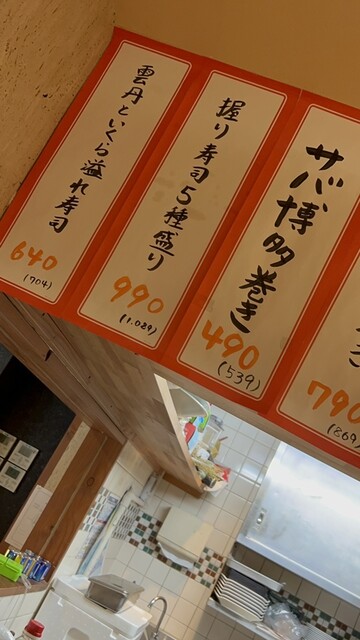 雲丹といくら溢れ寿司
640
(704)
握り寿司5種盛り
990
(1.089)
サバ博多巻き
490
(539)
790
(869)